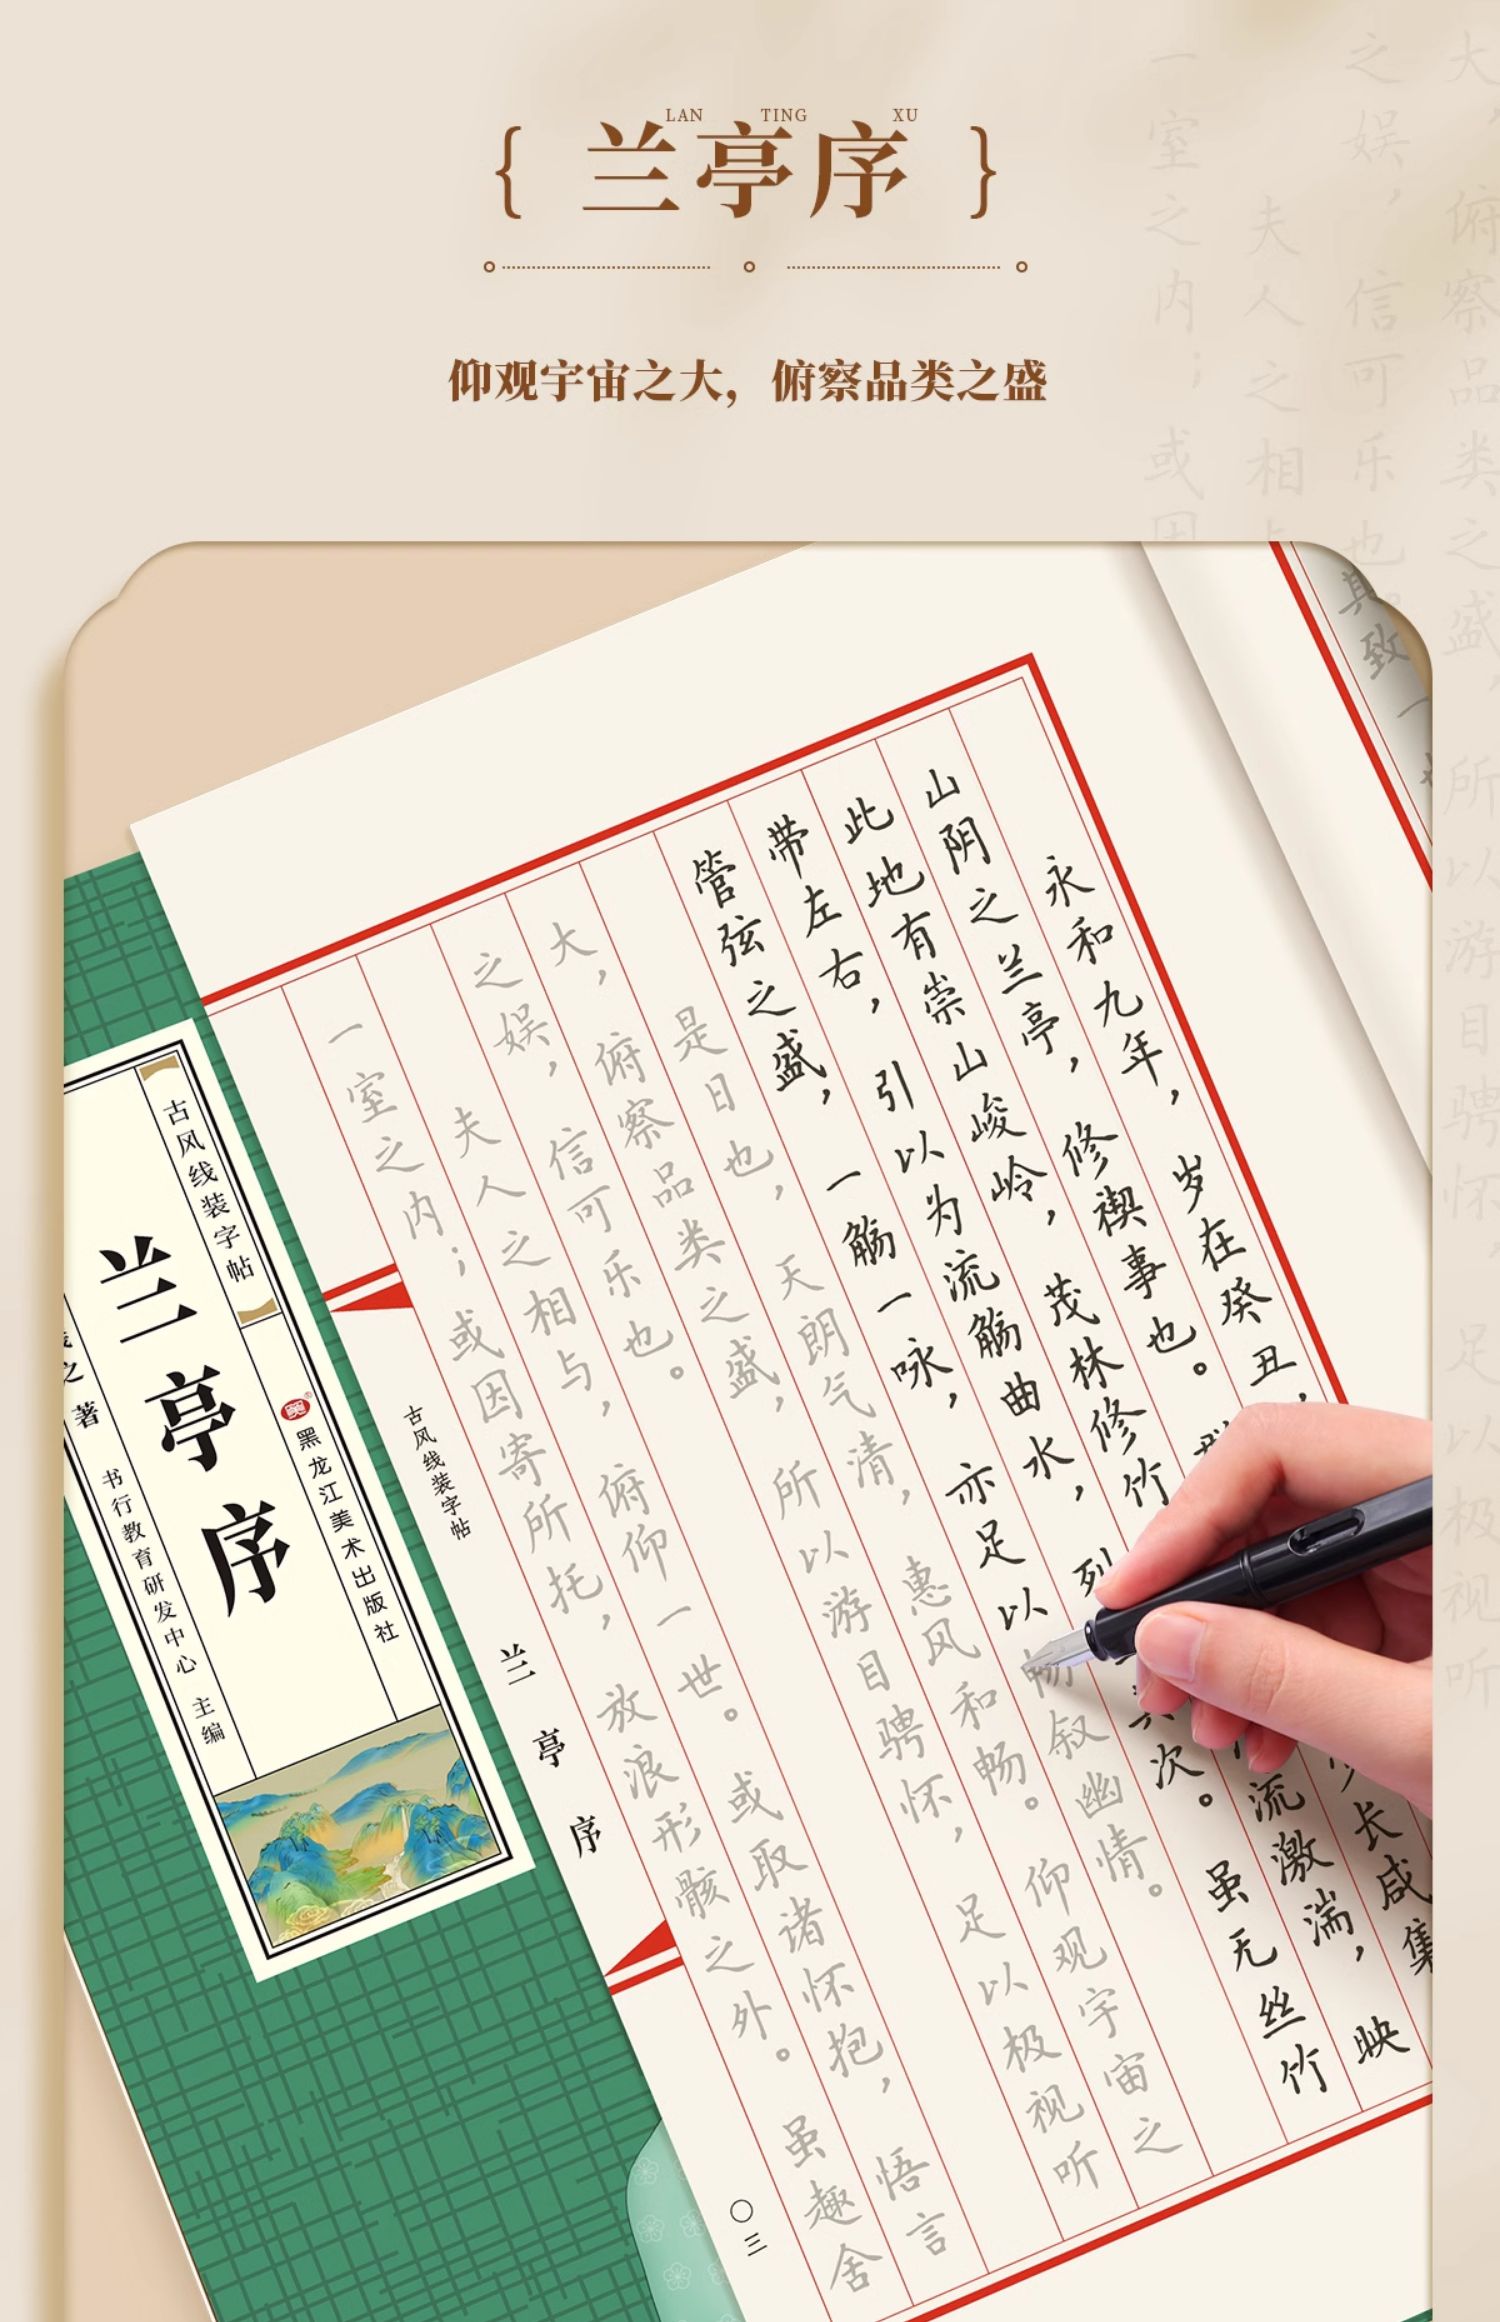 LAN TING XU
{ 兰亭序 }
仰观宇宙之大，俯察品类之盛
大，俯察品类之盛，所以游目骋怀，足以极视听
之娱，信可乐也
夫人之相
一室之内；或因
其致一
永和九年，岁在癸丑，
山阴之兰亭，修禊事也。少长咸集
此地有崇山峻岭，茂林修竹流激湍，映
带左右，引以为流觞曲水，列其次。虽无丝竹
管弦之盛，一觞一咏，亦足以畅叙幽情。
是日也，天朗气清，惠风和畅。仰观宇宙之
大，俯察品类之盛，所以游目骋怀，足以极视听
之娱，信可乐也。
夫人之相与，俯仰一世。或取诸怀抱，悟言
一室之内；或因寄所托，放浪形骸之外。虽趣舍
古风线装字帖
兰亭序
〇三
古风线装字帖
黑龙江美术出版社
兰亭序
之 著
书行教育研发中心 主编